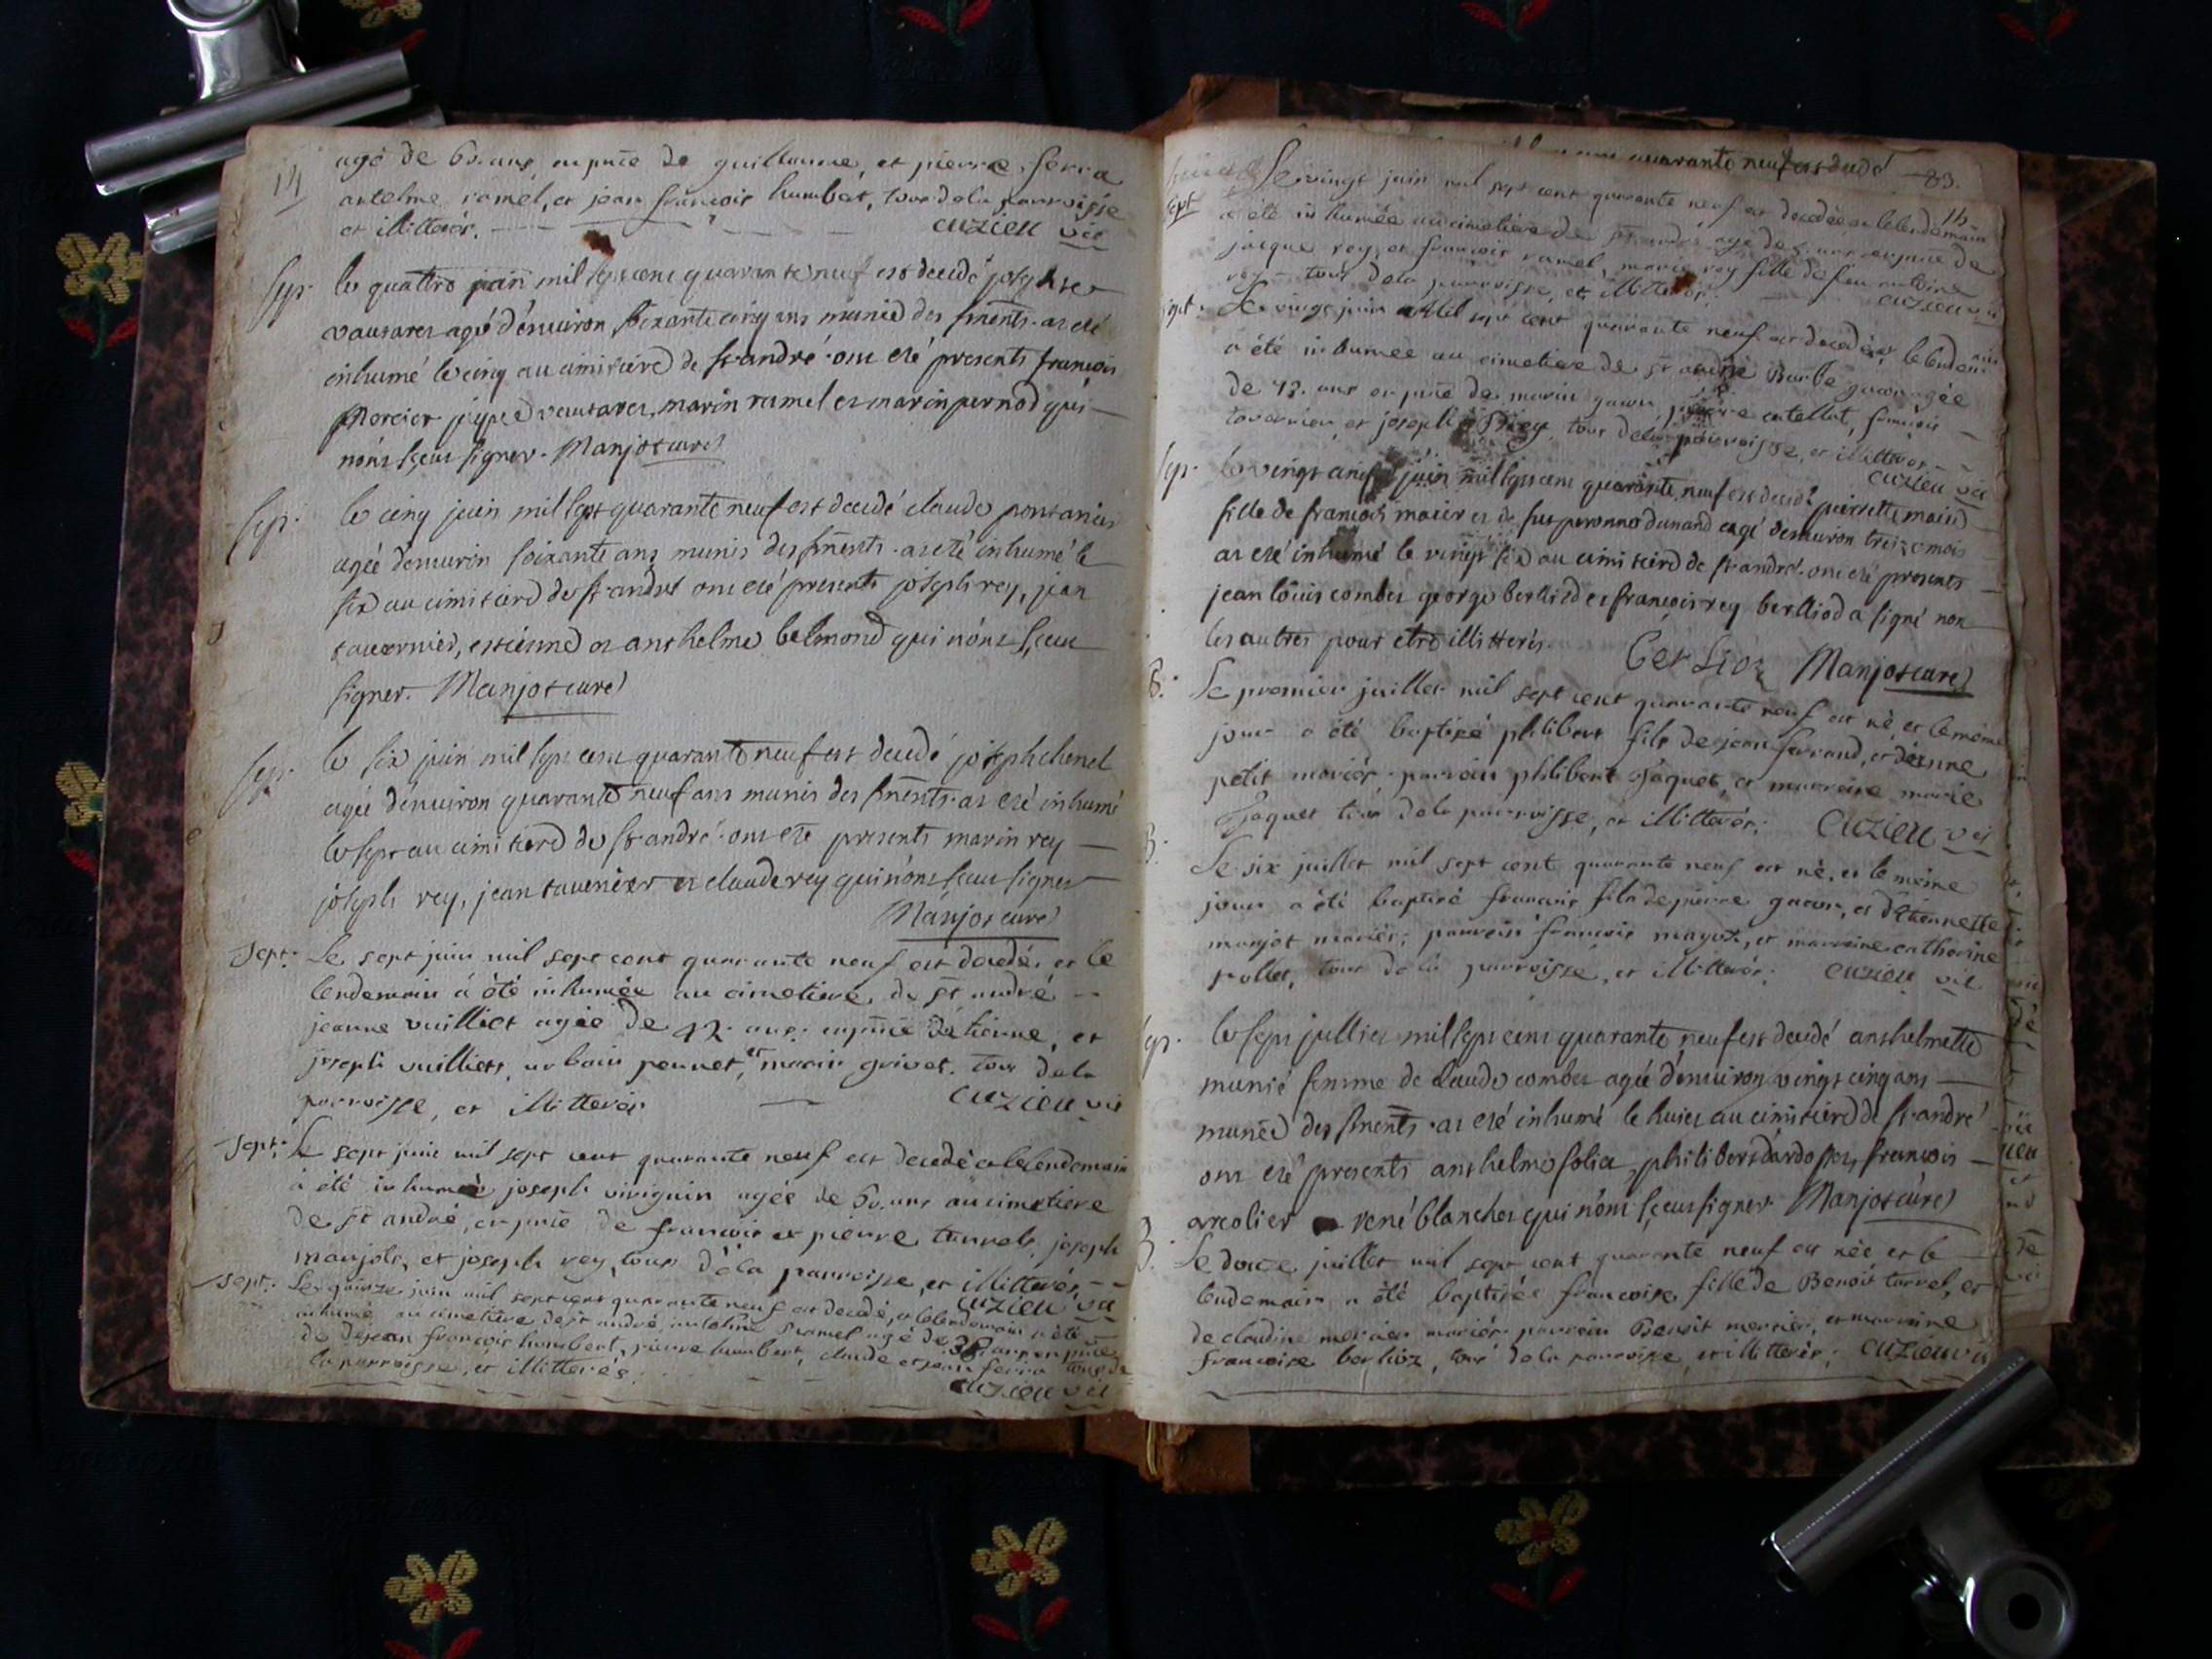 14
agé de 60. ans, en pñce de guillaume, et pierre ferra
antelme ramel, et jean françois humbert, tous de la parroisse
et illitterés. cuzieu vic
sep. le quattre juin mil sept cent quarante neuf est decedé joseph
vautaret agé d'environ soixante cinq ans munie des smènts. at eté
inhumé le cinq au cimitiere de st andré. ont eté presents françois
mercier vautaret, marin ramel et marin pernod qui
n'ont sçeu signer. Manjot curé
sep. le cinq juin mil sept quarante neuf est decedé claude pontanier
agée d'environ soixante ans munis des smènts. at eté inhumé le
six au cimitiere de st andré ont eté presents joseph rey, jean
tavernier, estienne et anthelme belmond qui n'ont sçeu
signer. Manjot curé
sep. le six juin mil sept cent quarante neuf est decedé joseph chenel
agée d'environ quarante neuf ans munis des smènts. at eté inhumé
le sept au cimitiere de st andré. ont eté presents marin rey
joseph rey, jean tavenier et claude rey qui n'ont sceu signer
Manjot curé
sept: Le sept juin mil sept cent quarante neuf est decedée et le
lendemain a été inhumée au cimetiere de st andré
jeanne vuilliet agée de 42. ans: en pñce d'étienne, et
joseph vuilliets, urbain pennet, et marin grivet. tous de la
parroisse, et illitterés cuzieu vic
sept: Le sept juin mil sept cent quarante neuf est decedé et le lendemain
a été inhumé joseph viriguin agée de 60. ans au cimetiere
de st andré, en pñce de françois et pierre turrels, joseph
manjots, et joseph rey, tous de la parroisse, et illitterés
cuzieu vic
sept: Le quinze juin mil sept cent quarante neuf est decedé, et le lendemain a été
inhumé au cimetiere de st andré, antelme ramel agé de 38 ans en pñce
de jean françois humbert, pierre humbert, claude et jean ferra tous de
la parroisse, et illitterés.
cuzieu vic
quarante neuf est decedé
83.
15
sept Le vingt juin mil sept cent quarante neuf est decedée et le lendemain
a été inhumée au cimetiere de st andré agé de ans en pñce de
jacque rey, et françois ramel, marie rey fille de feu antoine
rey tous de la parroisse, et illitterés. cuzieu vi
sept. Le vingt juin Mil sept cent quarante neuf est decedée, et le lendemain
a été inhumée au cimetiere de st andré Barbe gavon agée
de 73. ans en pñce de marin gavon, pierre catellat, françois
tavernier et joseph rey, tous de la parroisse, et illitteres
cuzieu vic
sep. le vingt cinq juin mil sept cent quarante neuf est decedé pierrette
fille de françois et de feu peronne dunand eagé d'environ treize mois
at eté inhumé le vingt six au cimitiere de st andré. ont eté presents
jean loüis combet george berliod et françois rey berlliod a signé non
les autres pour etre illitterés.
Berlioz Manjot curé
B. Le premier juillet mil sept cent quarante neuf est né, et le même
jour a été baptisé philibert fils de jean ferrand, et d'
petit mariés. parrain philibert Jaquet, et marraine marie
Jaquet tous de la parroisse, et illitterés. cuzieu vic
B. Le six juillet mil sept cent quarante neuf est né, et le même
jour a été baptisé françois fils de pierre gavon, et d'étiennette
manjot mariés; parrain françois mayot, et marraine catherine
pollet, tous de la parroisse, et illitterés. cuzieu vic
sep. le sept jullier mil sept cent quarante neuf est decedé anthelmette
munié femme de claude combet agée d'environ vingt cinq ans
munée des smènts. at eté inhumé le huict au cimitiere de st andré
ont eté presents anthelme foliet, philibert françois
arcolier rené blanchet qui n'ont sçeu signer Manjot curé
B. Le douze juillet mil sept cent quarante neuf est née et le
lendemain a été baptisée françoise fille de Benoit turrel, et
de claudine mercier mariés. parrain Benoit mercier, et marraine
françoise berlioz, tous de la parroisse, et illitterés; cuzieu vi